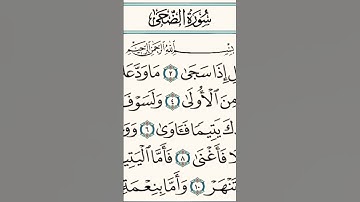 سُورَةُ الضُّحَىٰ
بِسْمِ ٱللَّهِ ٱلرَّحْمَٰنِ ٱلرَّحِيمِ
لِ إِذَا سَجَىٰ ٢ مَا وَدَّعَ
مِنَ ٱلْأُولَىٰ ٤ وَلَسَوْفَ
كَ يَتِيمًا فَـَٔاوَىٰ ٦ وَوَ
لًا فَأَغْنَىٰ ٨ فَأَمَّا ٱلْيَتِي
تَنْهَرْ ١٠ وَأَمَّا بِنِعْمَةِ